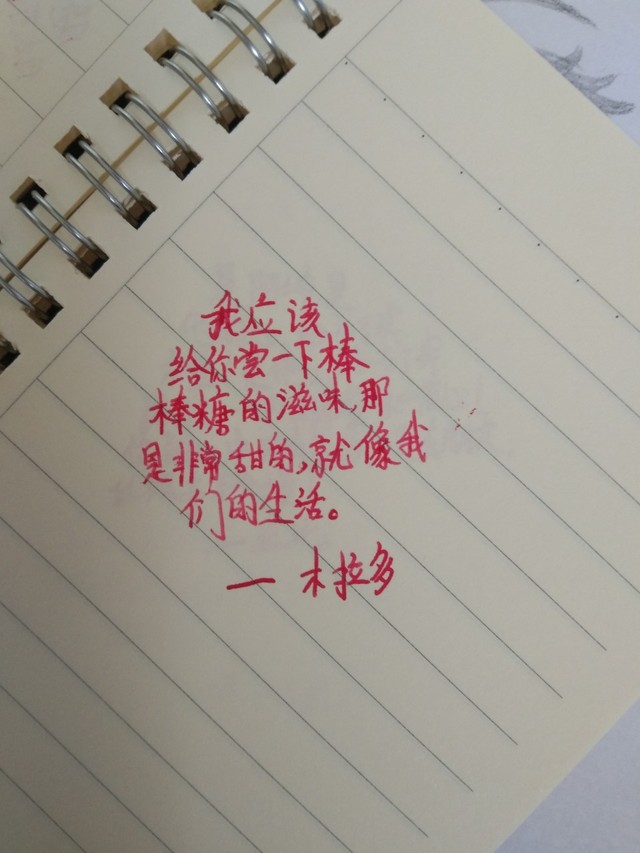 我应该
给你尝一下棒
棒糖的滋味,那
是非常甜的,就像我
们的生活。
— 木拉多